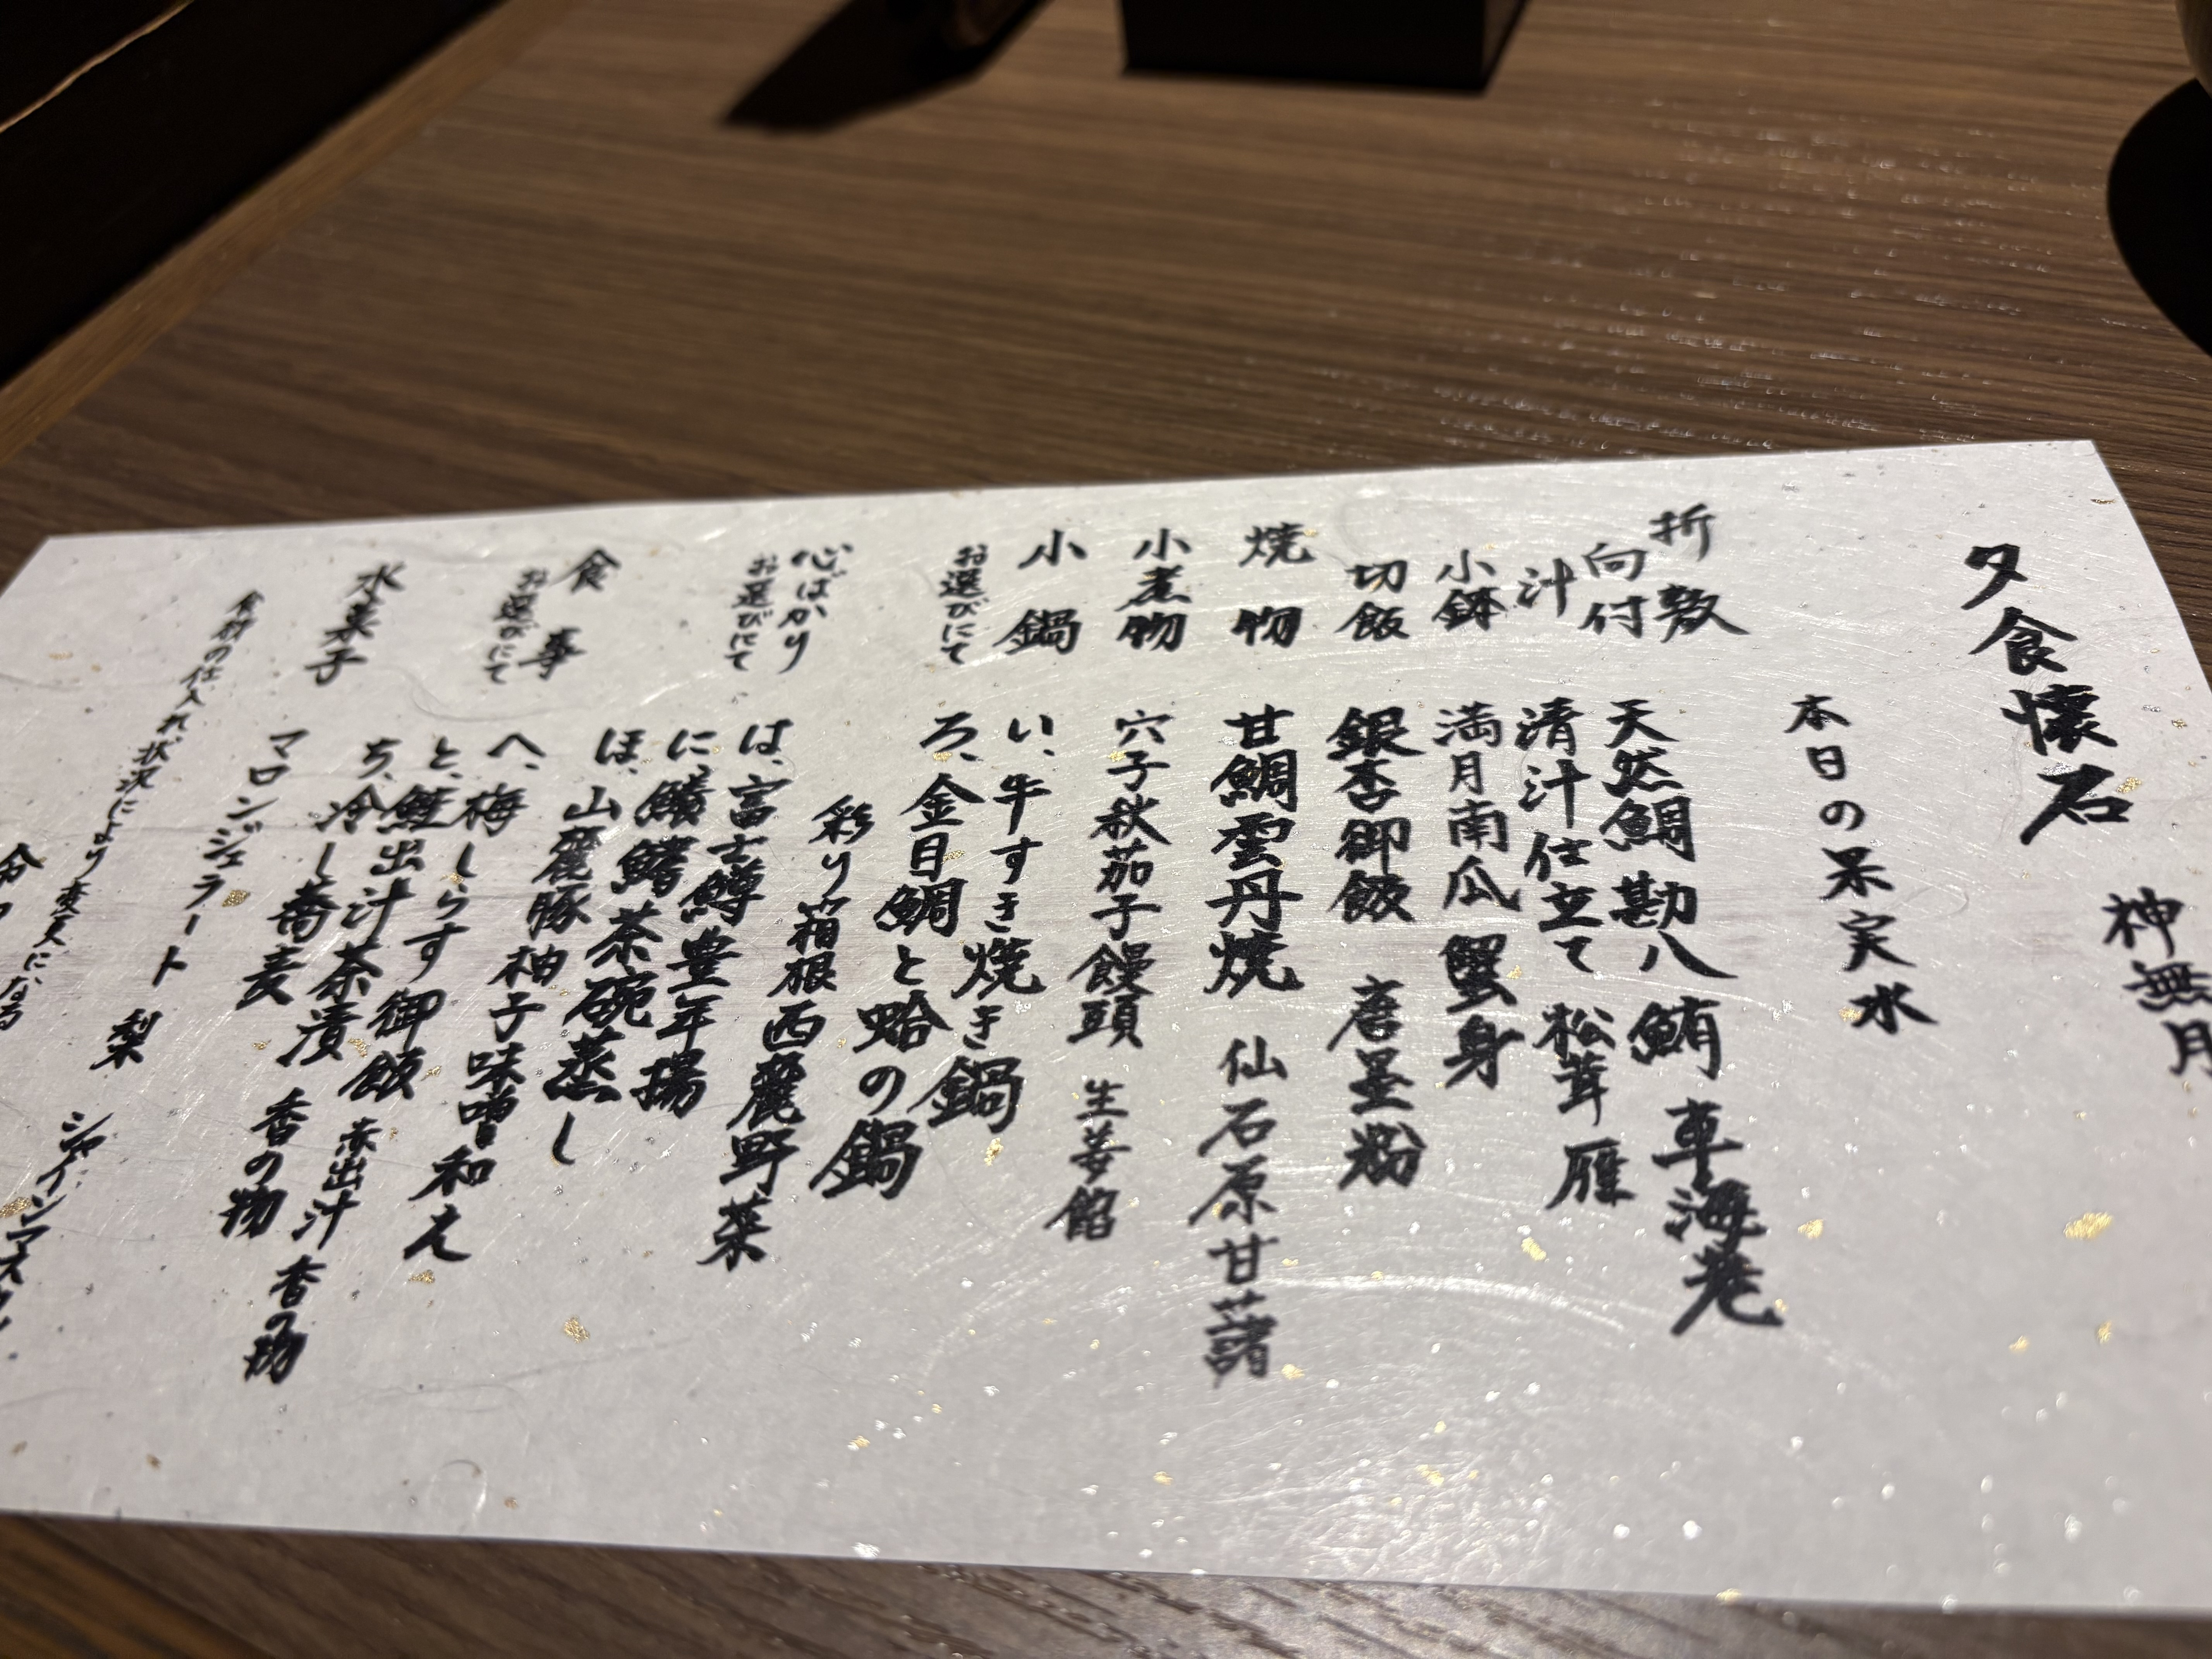 神無月
夕食懐石
本日の果実水
折敷
向付 天然鯛 勘八 鮪 車海老
汁 清汁仕立て 松茸 雁
小鉢 満月南瓜 蟹身
切飯 銀杏御飯 唐墨粉
焼物 甘鯛雲丹焼 仙石原甘藷
小煮物 穴子秋茄子饅頭 生姜餡
小鍋 い、牛すき焼き鍋
お選びにて ろ、金日鯛と蛤の鍋
彩り箱根西麓野菜
心ばかり
お選びにて は、富士鱒豊年揚
に、鱶鰭茶碗蒸し
ほ、山麓豚柚子味噌和え
食事 へ、梅しらす御飯 赤出汁 香の物
お選びにて と、鮭出汁茶漬 香の物
ち、冷し蕎麦
水菓子 マロンジェラート 梨 シャインマスカ
食材の仕入れ状況により変更になる